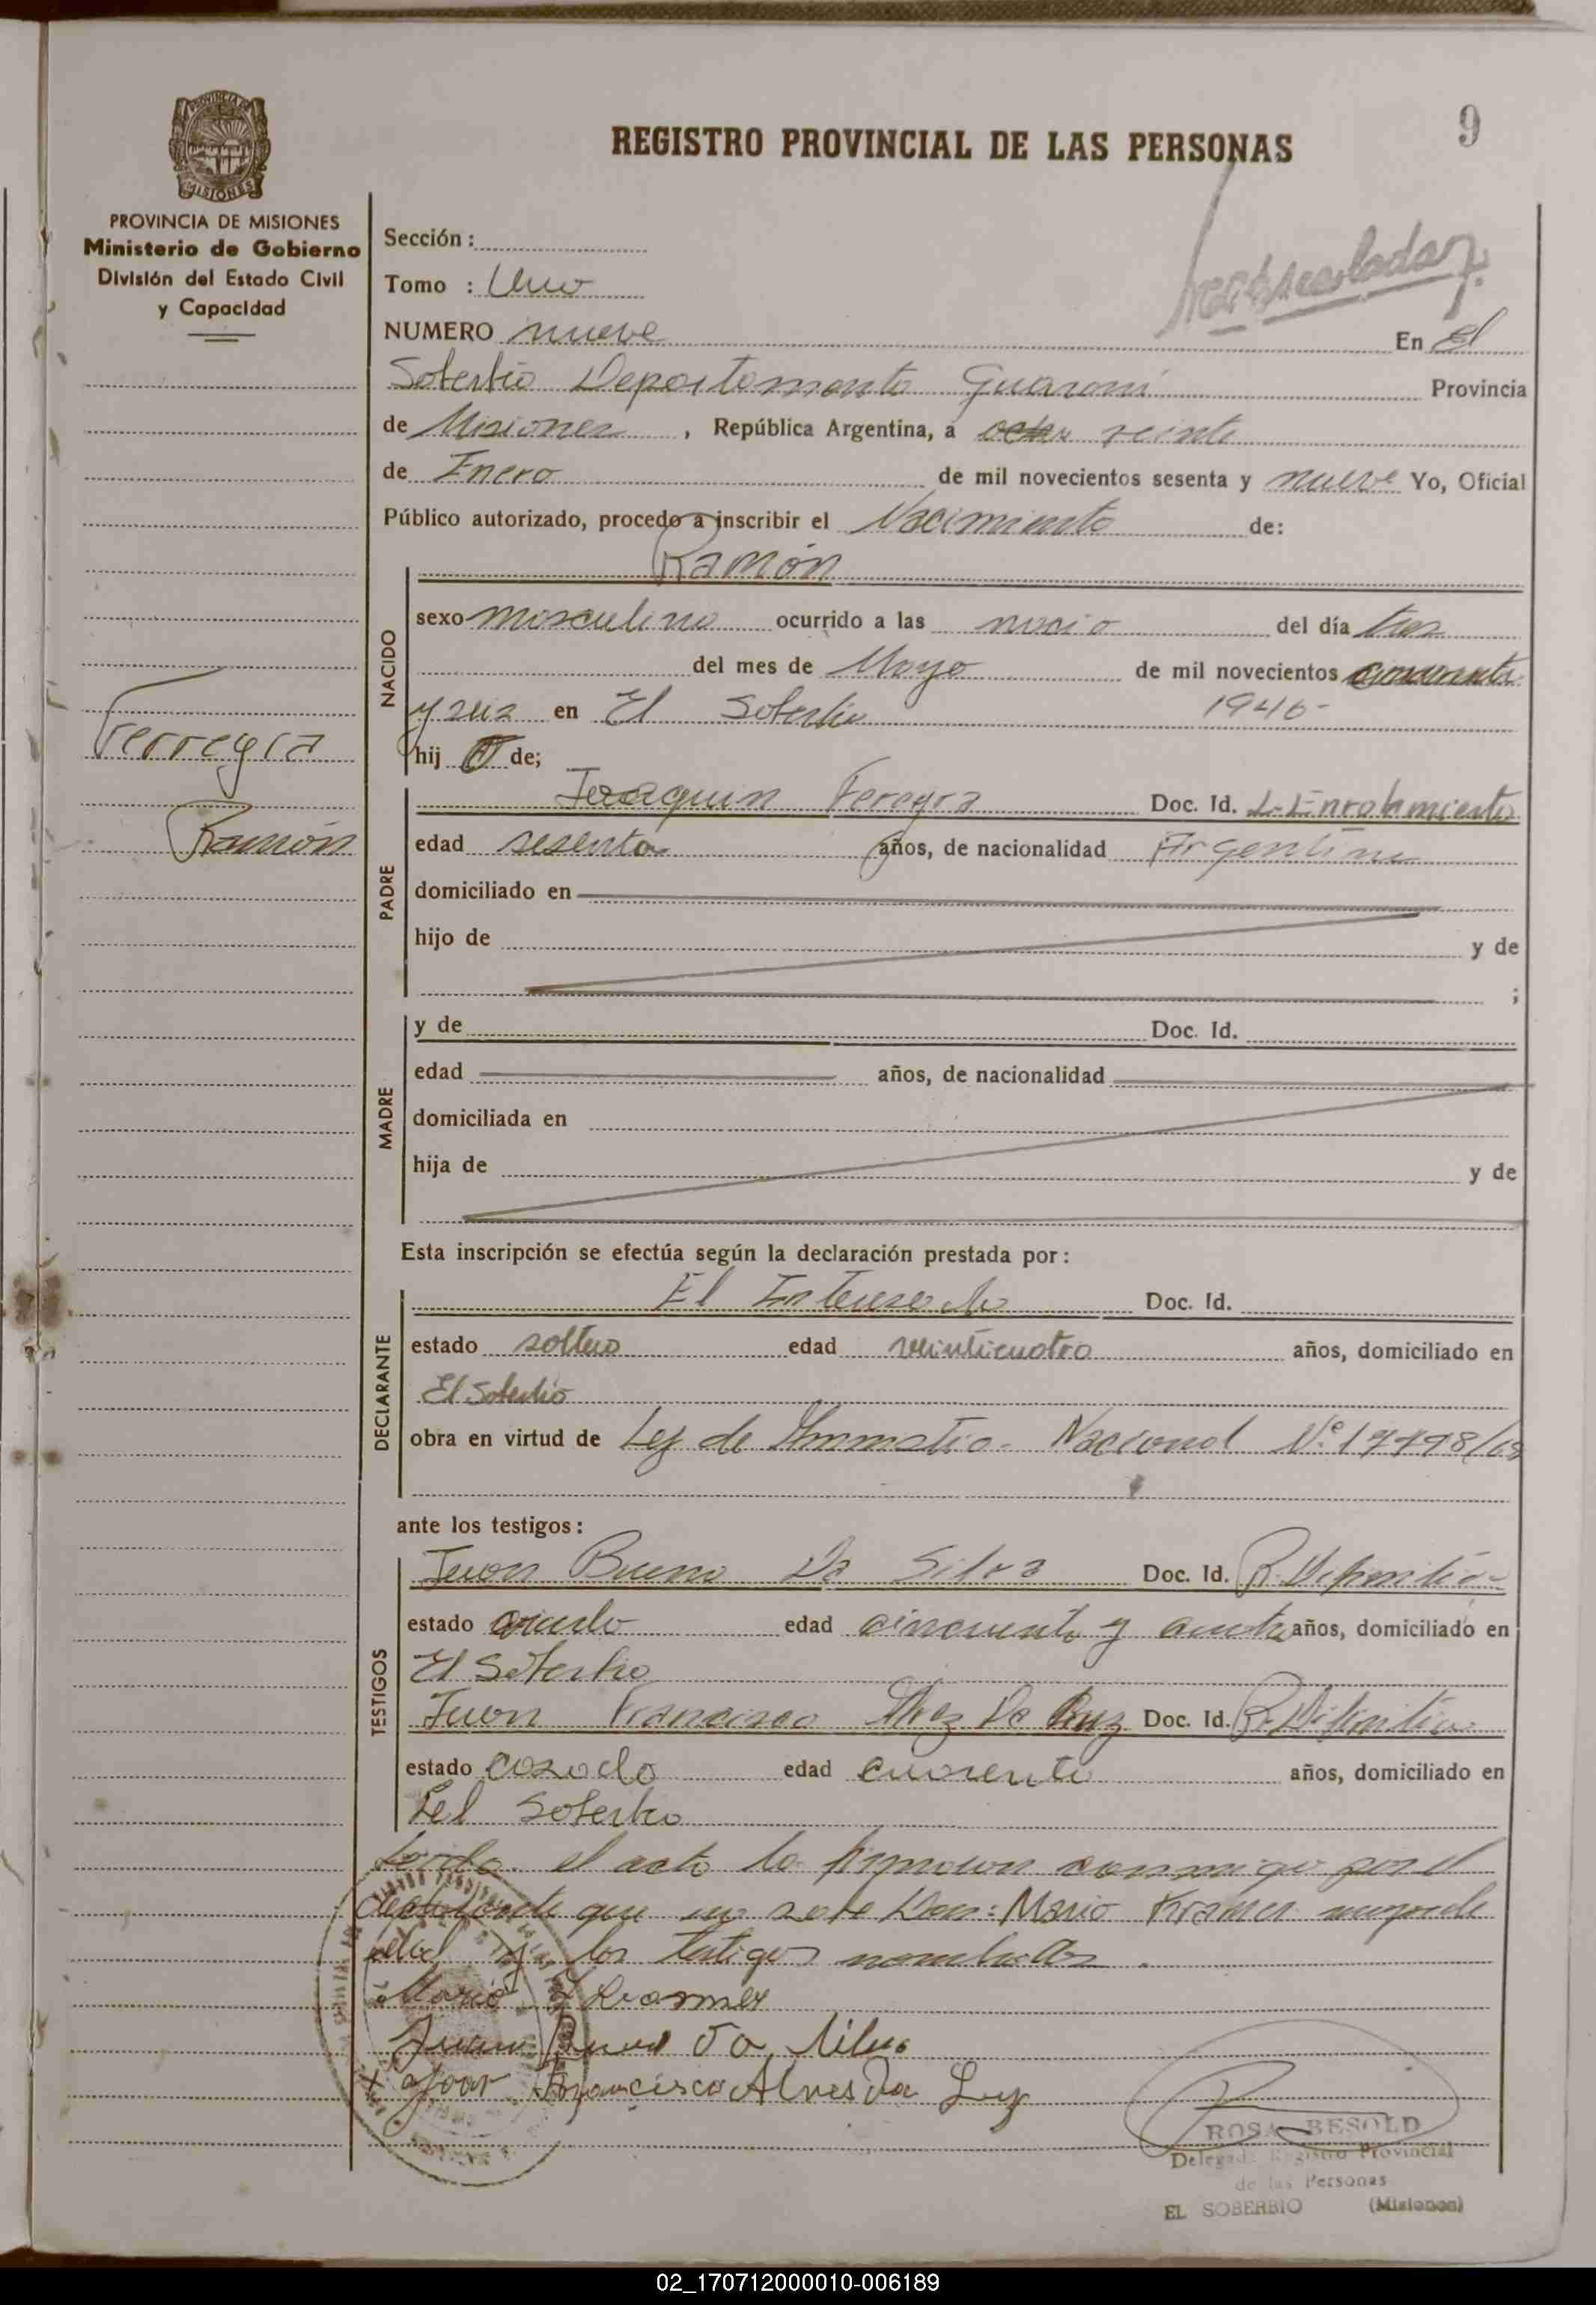 9
REGISTRO PROVINCIAL DE LAS PERSONAS
PROVINCIA DE MISIONES
PROVINCIA DE MISIONES
Ministerio de Gobierno
División del Estado Civil
y Capacidad
Sección :
Tomo : Uno
NUMERO nueve En El
Soberbio Departamento Guaraní Provincia
de Misiones , República Argentina, a veinte
de Enero de mil novecientos sesenta y nueve Yo, Oficial
Público autorizado, procedo a inscribir el Nacimiento de:
Ramón
NACIDO
sexo masculino ocurrido a las nació del día tres
del mes de Mayo de mil novecientos cuarenta
y seis en El Soberbio 1946-
hij o de;
Ferreyra
Ramón
PADRE
Joaquin Fereyra Doc. Id. L. Enrolamiento
edad sesenta años, de nacionalidad Argentino
domiciliado en
hijo de y de
;
MADRE
y de Doc. Id.
edad años, de nacionalidad
domiciliada en
hija de y de
Esta inscripción se efectúa según la declaración prestada por:
DECLARANTE
El Interesado Doc. Id.
estado soltero edad veinticuatro años, domiciliado en
El Soberbio
obra en virtud de Ley de Amnistia Nacional Nº 17798/68
ante los testigos:
TESTIGOS
Juan Bueno Da Silva Doc. Id. R. Definitiva
estado edad cincuenta y cuatro años, domiciliado en
El Soberbio
Juan Francisco Alvez Da Doc. Id. R. Definitiva
estado casado edad cuarenta años, domiciliado en
El Soberbio
Leida el acta la firmaron conmigo por el
declarante que no sabe Don: Mario Kramer
y los testigos nombrados.
Mario Kramer
Juan Bueno Da Silva
Joan Francisco Alves Da Luz
ROSA BESOLD
Delegada Registro Provincial
de las Personas
EL SOBERBIO (Misiones)
02_170712000010-006189